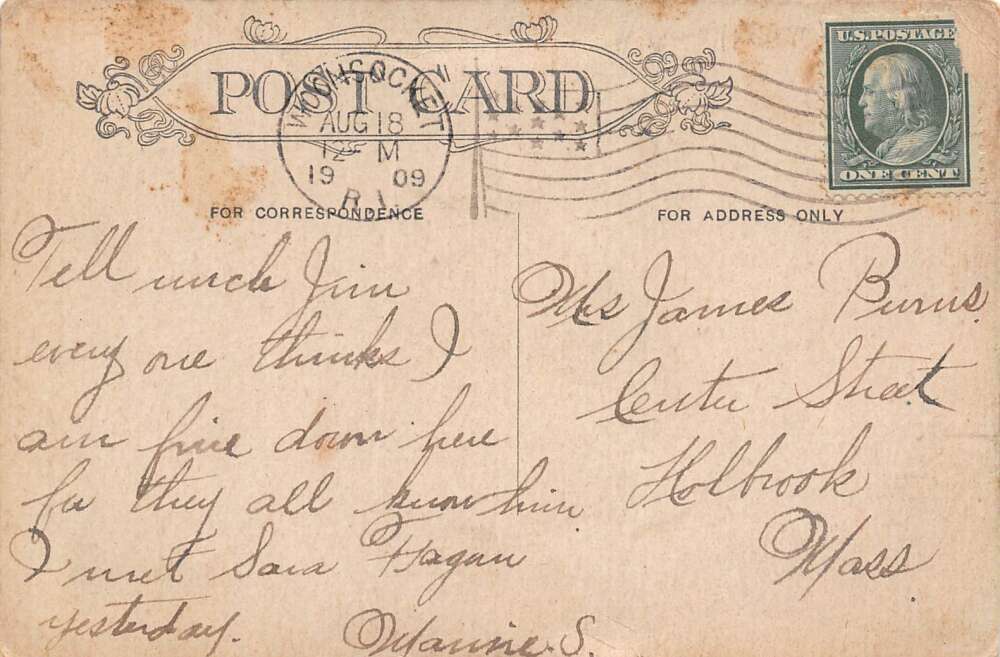 POST CARD
WOONSOCKET
AUG 18
12 M
19 09
R.I.
U.S. POSTAGE
ONE CENT
FOR CORRESPONDENCE
FOR ADDRESS ONLY
Tell uncle Jim
every one thinks I
am fine down here
for they all know him
I met Sara Fagan
yesterday.
Mamie. S.
Mrs James Burns.
Center Street
Holbrook
Mass